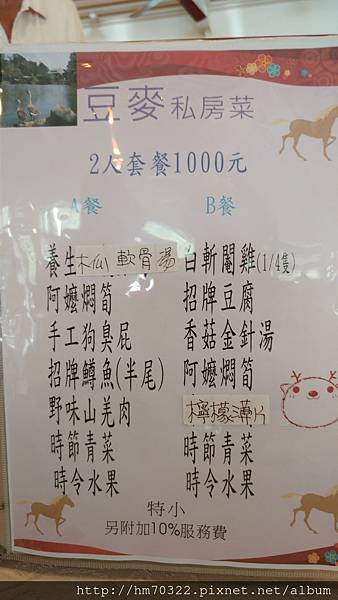 豆麥私房菜
2人套餐1000元
A餐 B餐
養生木瓜軟骨湯 白斬閹雞(1/4隻)
阿嬤燜筍 招牌豆腐
手工狗臭屁 香菇金針湯
招牌鱒魚(半尾) 阿嬤燜筍
野味山羌肉 檸檬滿片
時節青菜 時節青菜
時令水果 時令水果
特小
另附加10%服務費
http://hm70322.pixnet.net/album